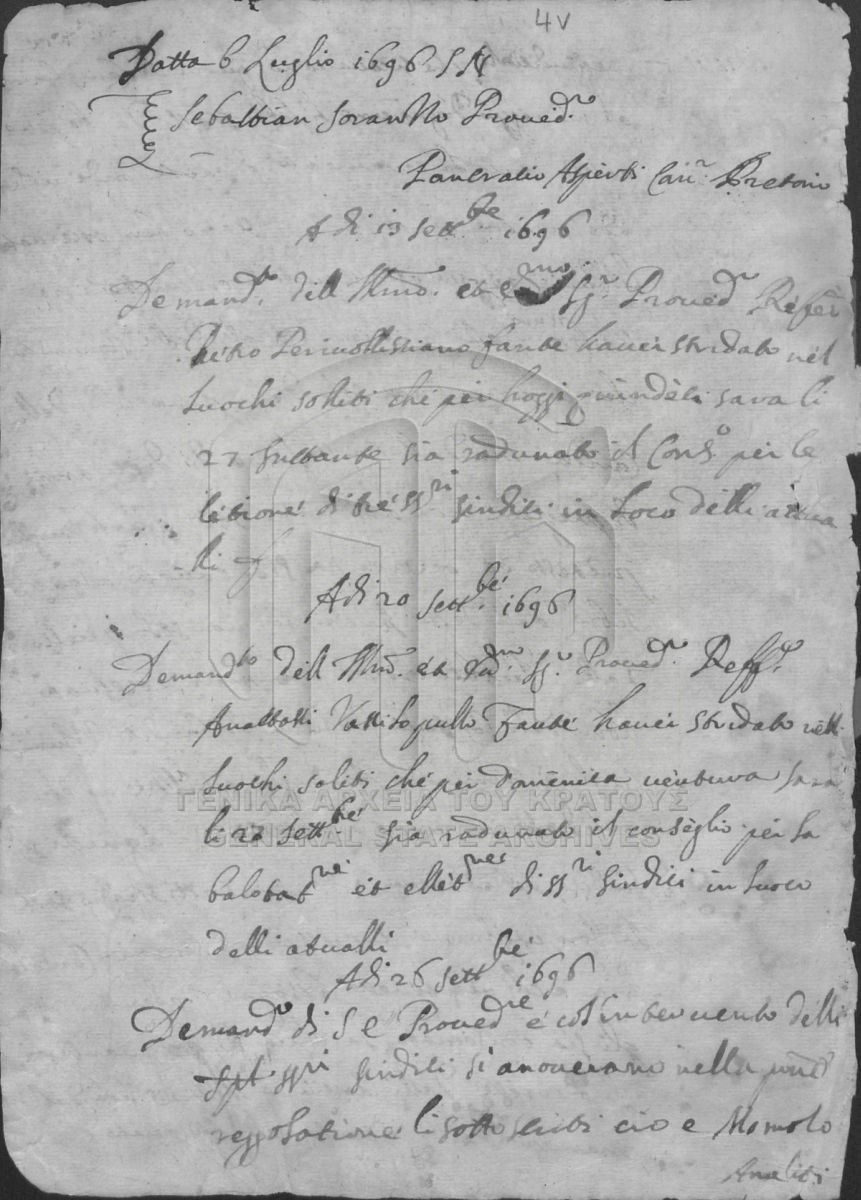 4v
Datta 6 Luglio 1696 S N
Sebastian Soranzo Proved.r
Pancratio Asperti Can.r Pretorio
Adi 13 sett.bre 1696
Demand.to dell Illmo. et Sig.r Proved.r Refferi
Pietro fante haver stridato nel
luochi soliti che per hoggi quindeci sara li
27 sia radunato il Cons.o per le
letione di tre SS.ri sindici in loco delli attua
li
Adi 20 sett.bre 1696
Demand.to dell Illmo. et Sig.r Proved.r Reff.
Anastassi Vassilopullo Fante haver stridato nelli
luochi soliti che per domenica ventura sara
li 27 sett.bre sia radunato il conseglio per la
balotat.ne et ellet.nes di SS.ri sindici in luoco
delli atualli
Adi 26 sett.bre 1696
Demand.o di S E Proved.re e col intervento delli
Spt. SS.ri sindici si anoverano nella pnte
reggolatione li sottoscriti cio e Momolo
Analiti
ΓΕΝΙΚΑ ΑΡΧΕΙΑ ΤΟΥ ΚΡΑΤΟΥΣ
GENERAL STATE ARCHIVES